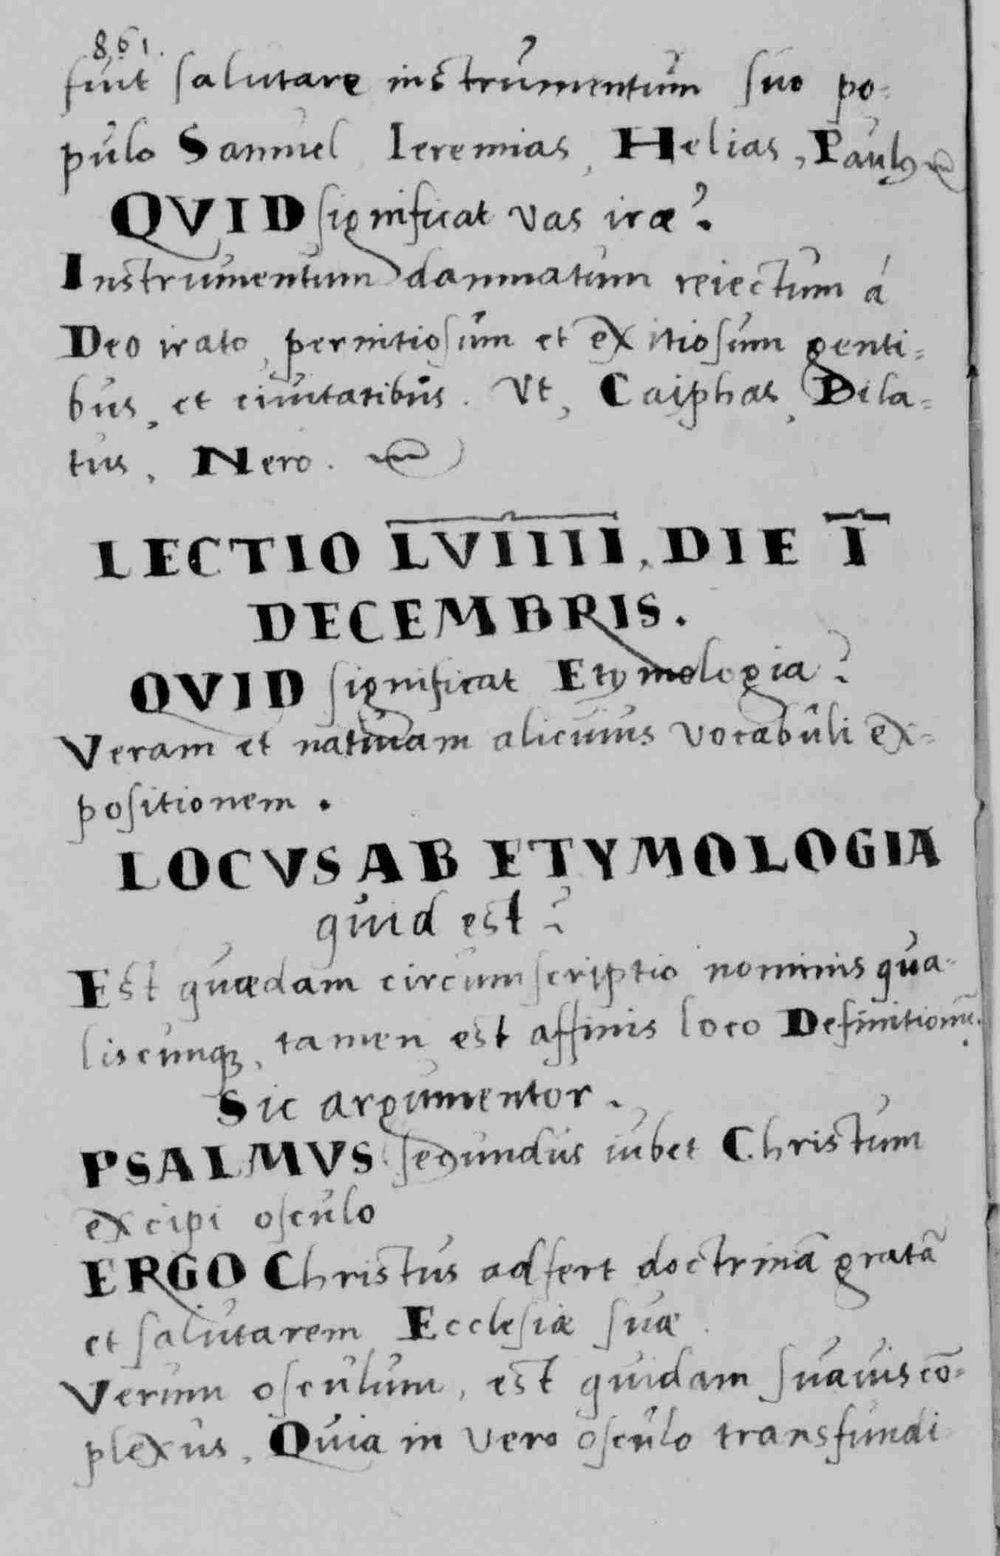 861.
fuit salutare instrumentum suo po-
pulo Samuel, Ieremias, Helias, Paulꝰ
QVID significat vas iræ?
Instrumentum damnatum reiectum á
Deo irato, pernitiosum et exitiosum genti=
bus, et ciuitatibus. Vt, Caiphas, Pila=
tus, Nero.
LECTIO LVIIII, DIE I
DECEMBRIS.
QVID significat Etymologia?
Veram et natiuam alicuius vocabuli ex=
positionem.
LOCVS AB ETYMOLOGIA
quid est?
Est quædam circumscriptio nominis qua-
liscunqꝫ, tamen est affinis loco Definitionũ.
Sic argumentor.
PSALMVS secundus iubet Christum
excipi osculo
ERGO Christus adfert doctrinã gratã
et salutarem Ecclesiæ suæ.
Verum osculum, est quidam suauis cõ-
plexus. Quia in vero osculo transfundi